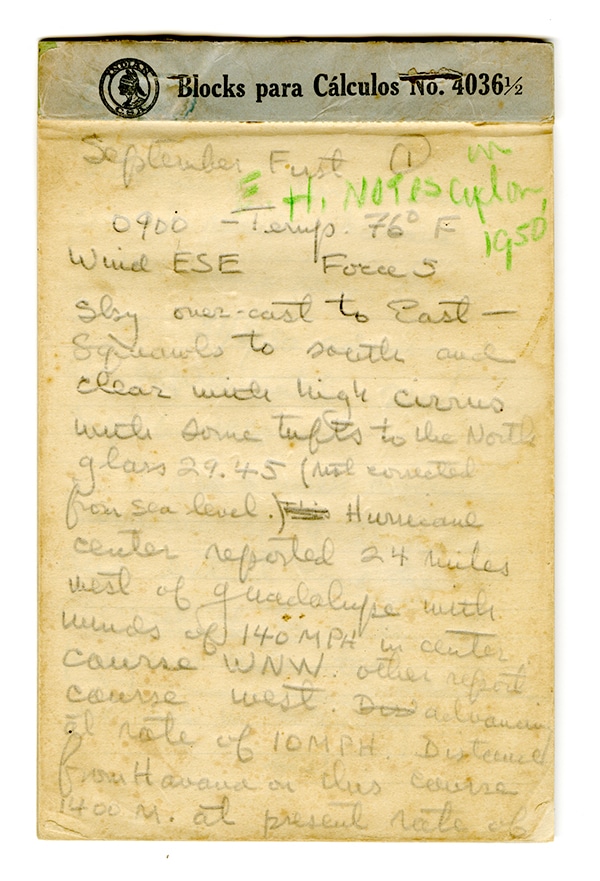 INDIAN
C.S.A.
Blocks para Cálculos No. 4036½
September First (1) in
E. H. NOTES cyclone,
1950
0900 - Temp. 76° F
Wind ESE Force 5
Sky over-cast to East -
Squawls to south and
clear with high cirrus
with some tufts to the North
glass 29.45 (not corrected
from sea level.) Hurricane
center reported 24 miles
west of Guadalupe with
winds of 140 MPH in center
course WNW. other report
course west. Dis advancing
at rate of 10 MPH. Distance
from Havana on this course
1400 M. at present rate of